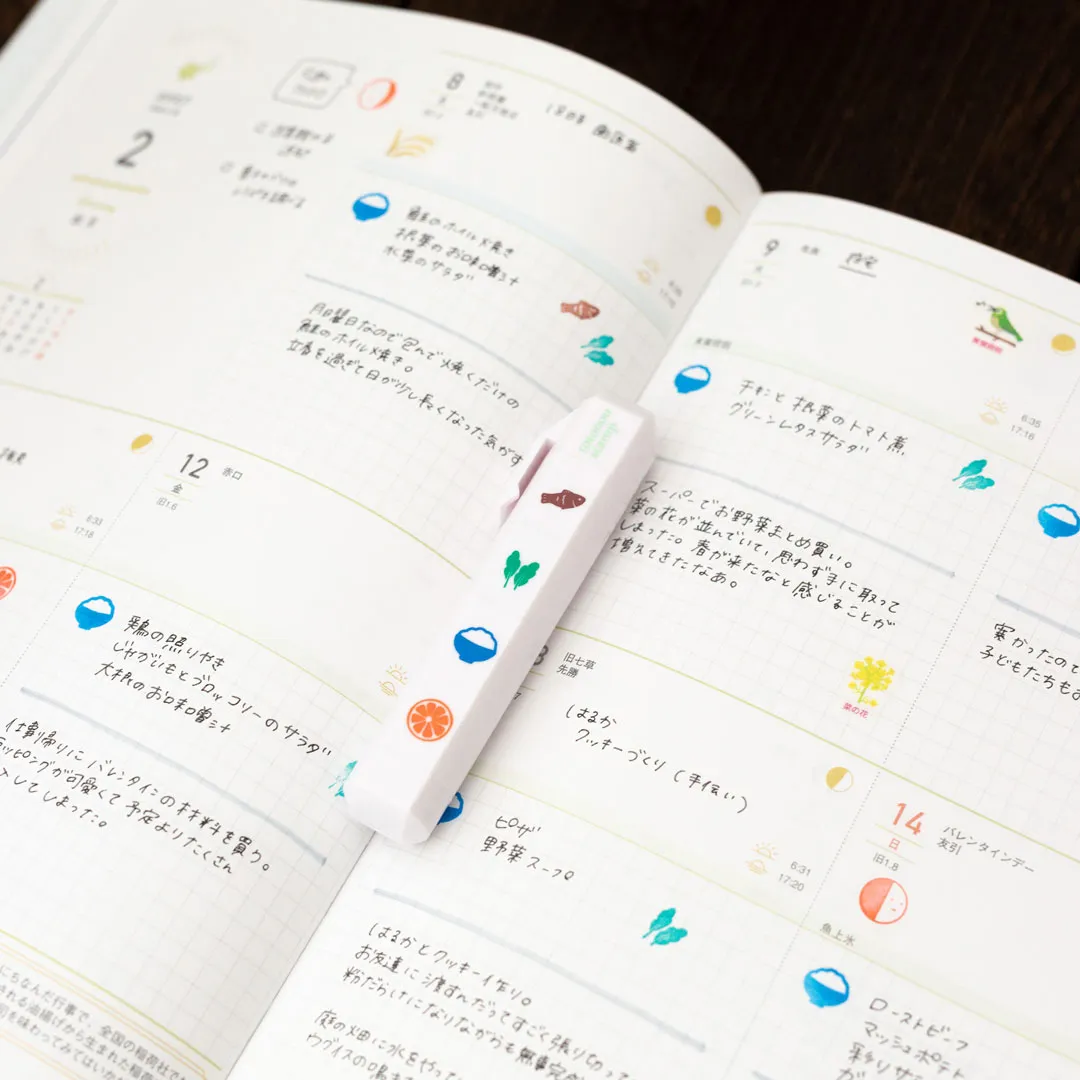 2
8
しはる 歯医者
鮭のホイル焼き
根菜のお味噌汁
水菜のサラダ
月曜日なので包んで焼くだけの
鮭のホイル焼き。
立春を過ぎて日が少し長くなった気がす
9
在宅
6:35
17:16
チキンと根菜のトマト煮、
グリーンレタスサラダ
スーパーでお野菜まとめ買い。
菜の花が並んでいて、思わず手に取って
しまった。春が来たなと感じることが
増えてきたなあ。
菜の花
12
金
旧1.6
赤口
6:33
17:18
鶏の照りやき
じゃがいもとブロッコリーのサラダ
大根のお味噌汁
仕事帰りにバレンタインの材料を買う。
ラッピングが可愛くて予定よりたくさん
してしまった。
旧七草
先勝
はるか
クッキーづくり(手伝い)
6:31
17:20
ピザ
野菜スープ
はるかとクッキー作り。
お友達に渡すんだってすごく張り切って
粉だらけになりながらも無事完
庭の畑に水をやっ
ウグイスの鳴き
14
日
旧1.8
バレンタインデー
友引
魚上氷
ローストビーフ
マッシュポテト
彩りサ
が
寒かったので
子どもたちもお
にちなんだ行事で、全国の稲荷社で
される油揚げから生まれた稲荷
司を味わってみてはいか